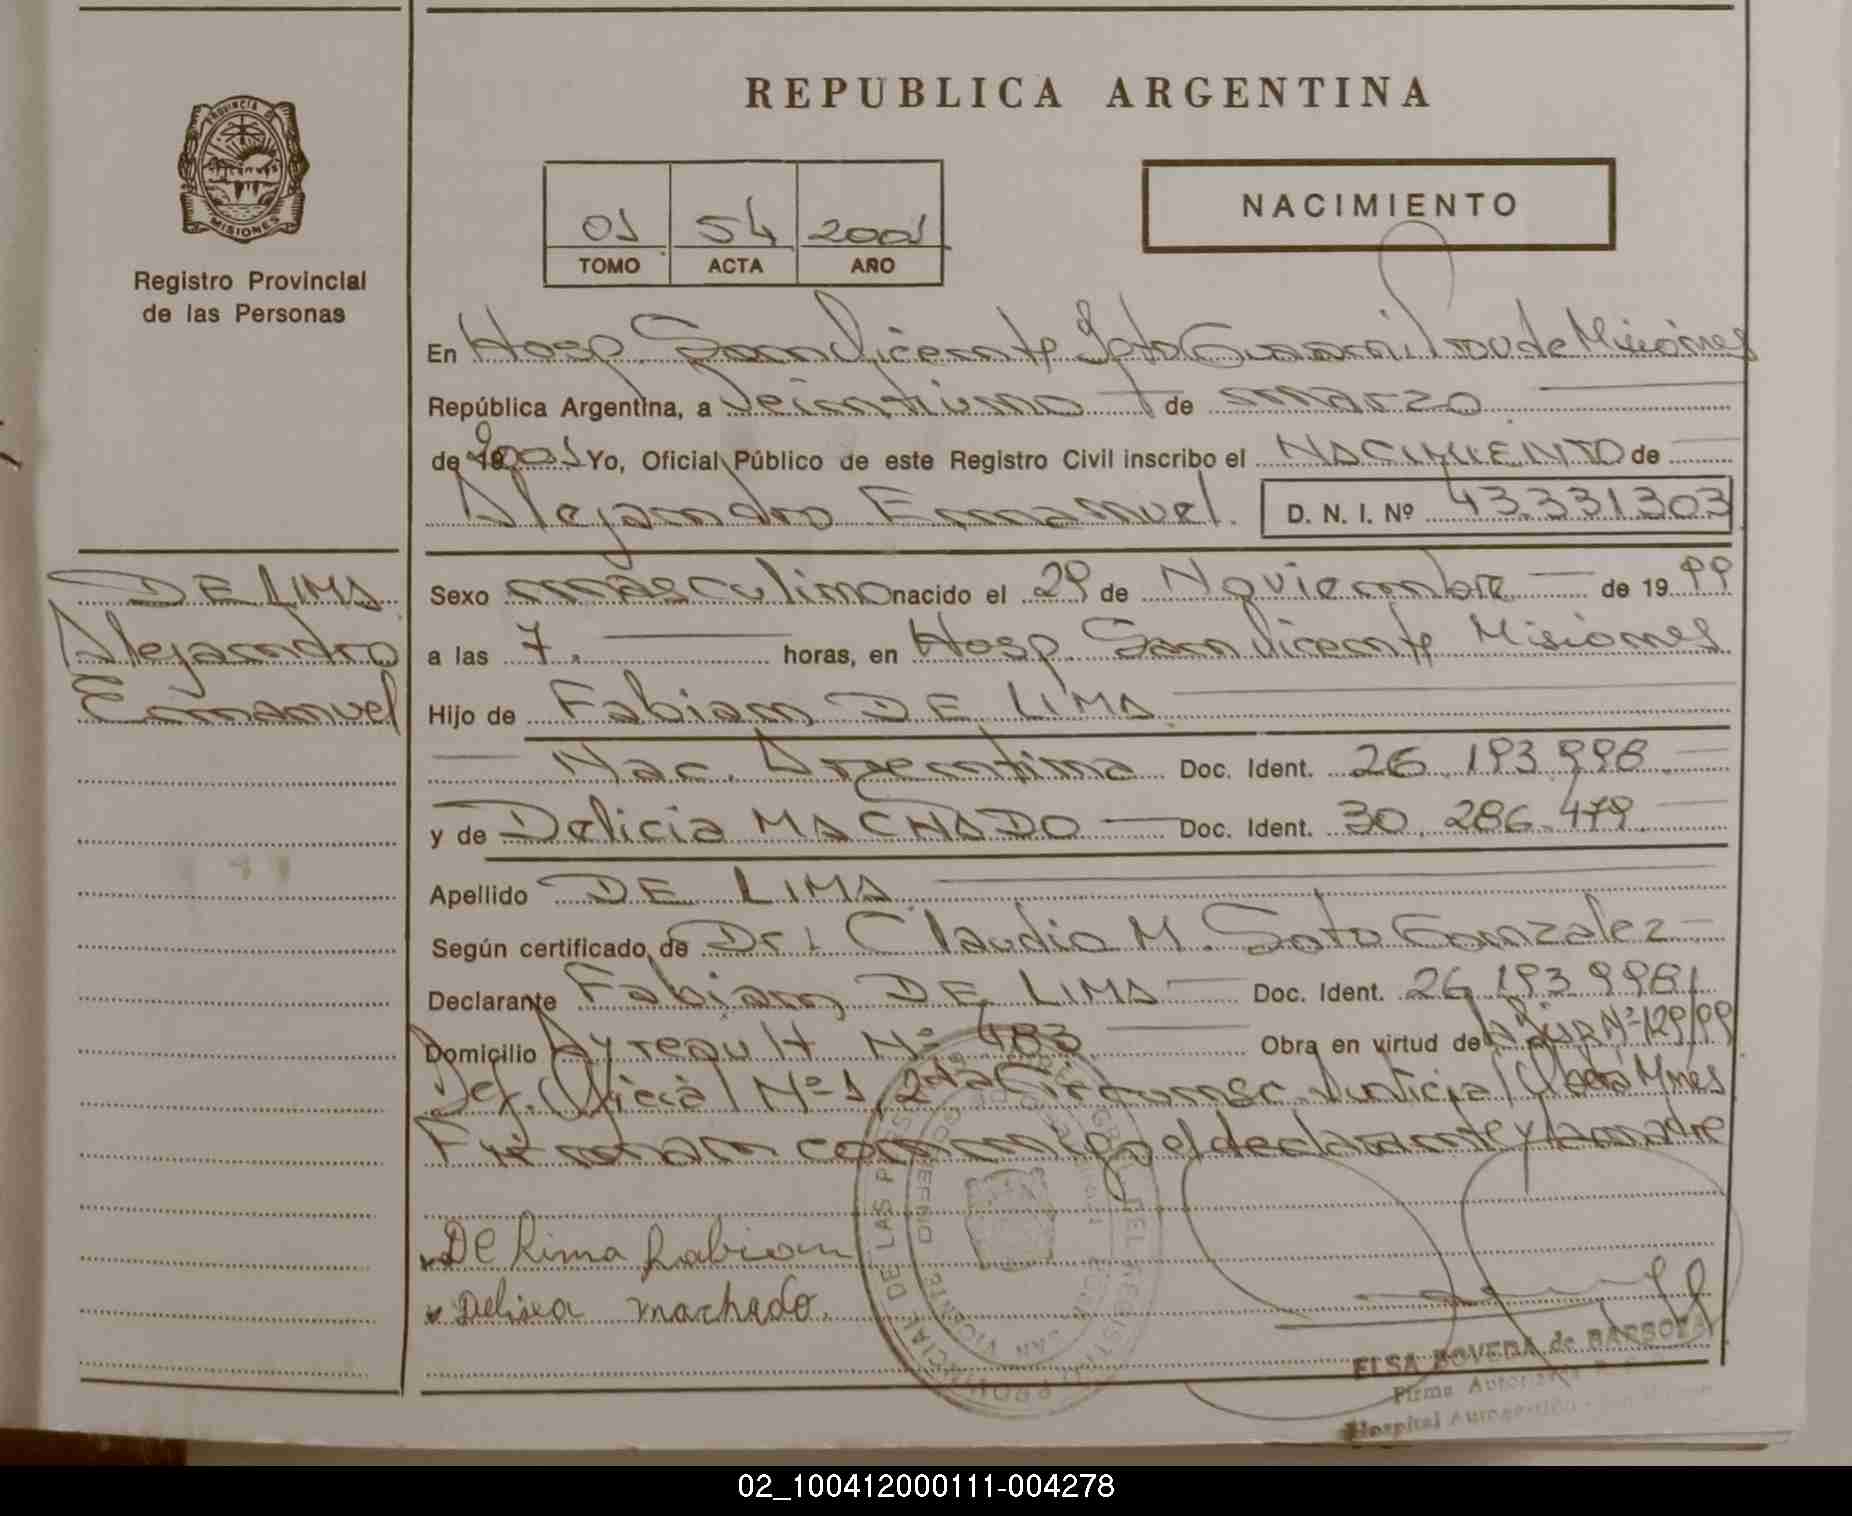 REPUBLICA ARGENTINA
PROVINCIA DE
MISIONES
Registro Provincial
de las Personas
01 54 2001
TOMO ACTA AÑO
NACIMIENTO
En Hosp. San Vicente Dpto Guaraní Prov de Misiones
República Argentina, a veintiuno de marzo
de 2001 Yo, Oficial Público de este Registro Civil inscribo el NACIMIENTO de
Alejandro Emmanuel. D. N. I. Nº 43.331303
DE LIMA
Alejandro
Emmanuel
Sexo masculino nacido el 29 de Noviembre de 1999
a las 7. horas, en Hosp. San Vicente Misiones
Hijo de Fabian DE LIMA
Nac. Argentina Doc. Ident. 26.193.998
y de Delicia MACHADO Doc. Ident. 30.286.479
Apellido DE LIMA
Según certificado de Dr. Claudio M. Soto Gonzalez
Declarante Fabian DE LIMA Doc. Ident. 26 193 998
Domicilio Ayrault Nº 483 Obra en virtud de Nº 129/99
Def. Oficial Nº 1, 2da Circunsc. Justicia Oberá Mnes
Firman conmigo el declarante y la madre
De Lima Fabian
Delixa machado.
ELSA BOVEDA de BARBOZA
Firma
Hospital
02_100412000111-004278